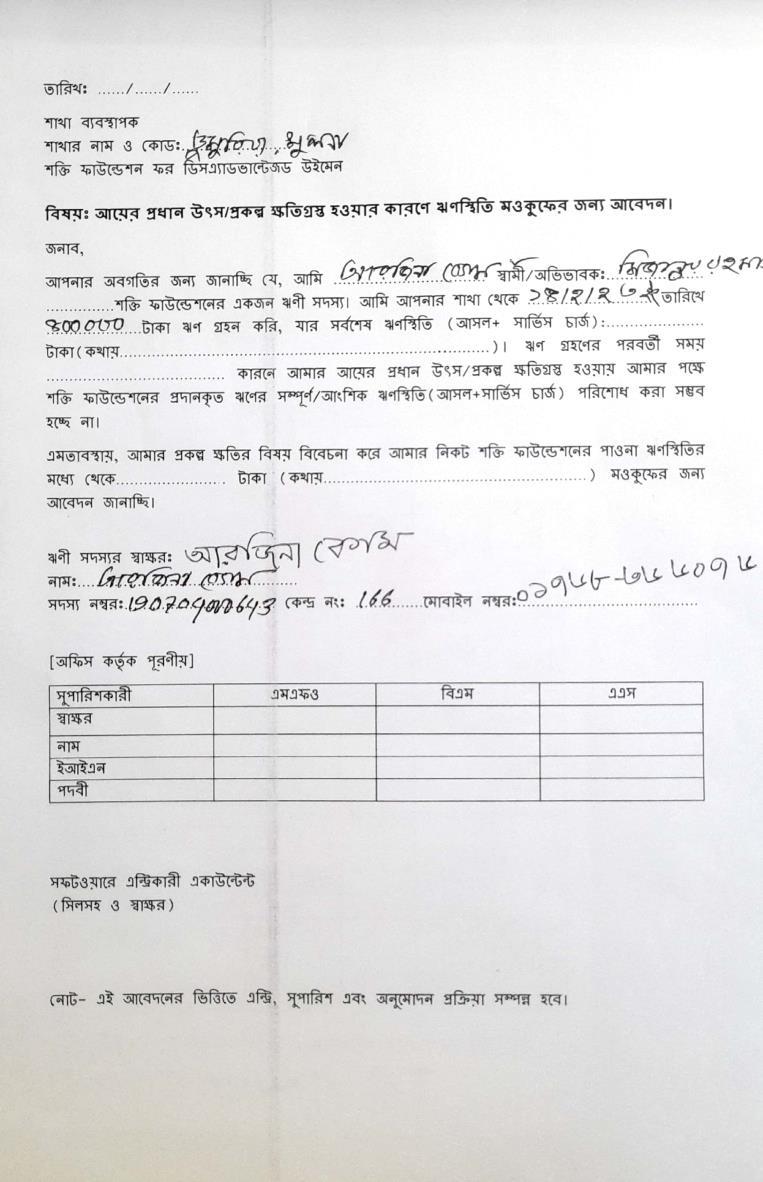 তারিখ: ....../....../......
শাখা ব্যবস্থাপক
শাখার নাম ও কোড: খুলনা
শক্তি ফাউন্ডেশন ফর ডিসএ্যাডভান্টেজড উইমেন
বিষয়: আয়ের প্রধান উৎস/প্রকল্প ক্ষতিগ্রস্ত হওয়ার কারণে ঋণস্থিতি মওকুফের জন্য আবেদন।
জনাব,
আপনার অবগতির জন্য জানাচ্ছি যে, আমি আরজিনা বেগম স্বামী/অভিভাবক: মিজানুর রহমান
..............শক্তি ফাউন্ডেশনের একজন ঋণী সদস্য। আমি আপনার শাখা থেকে তারিখে
টাকা ঋণ গ্রহন করি, যার সর্বশেষ ঋণস্থিতি (আসল+ সার্ভিস চার্জ):....................
টাকা(কথায়..............................................................)। ঋণ গ্রহণের পরবর্তী সময়
.................................. কারনে আমার আয়ের প্রধান উৎস/প্রকল্প ক্ষতিগ্রস্ত হওয়ায় আমার পক্ষে
শক্তি ফাউন্ডেশনের প্রদানকৃত ঋণের সম্পূর্ণ/আংশিক ঋণস্থিতি(আসল+সার্ভিস চার্জ) পরিশোধ করা সম্ভব
হচ্ছে না।
এমতাবস্থায়, আমার প্রকল্প ক্ষতির বিষয় বিবেচনা করে আমার নিকট শক্তি ফাউন্ডেশনের পাওনা ঋণস্থিতির
মধ্যে থেকে...................... টাকা (কথায়.............................................) মওকুফের জন্য
আবেদন জানাচ্ছি।
ঋণী সদস্যর স্বাক্ষর: আরজিনা বেগম
নাম: আরজিনা বেগম
সদস্য নম্বর: কেন্দ্র নং: 166 মোবাইল নম্বর:
[অফিস কর্তৃক পূরণীয়]
সুপারিশকারী এমএফও বিএম এএস
স্বাক্ষর
নাম
ইআইএন
পদবী
সফটওয়ারে এন্ট্রিকারী একাউন্টেন্ট
(সিলসহ ও স্বাক্ষর)
নোট- এই আবেদনের ভিত্তিতে এন্ট্রি, সুপারিশ এবং অনুমোদন প্রক্রিয়া সম্পন্ন হবে।